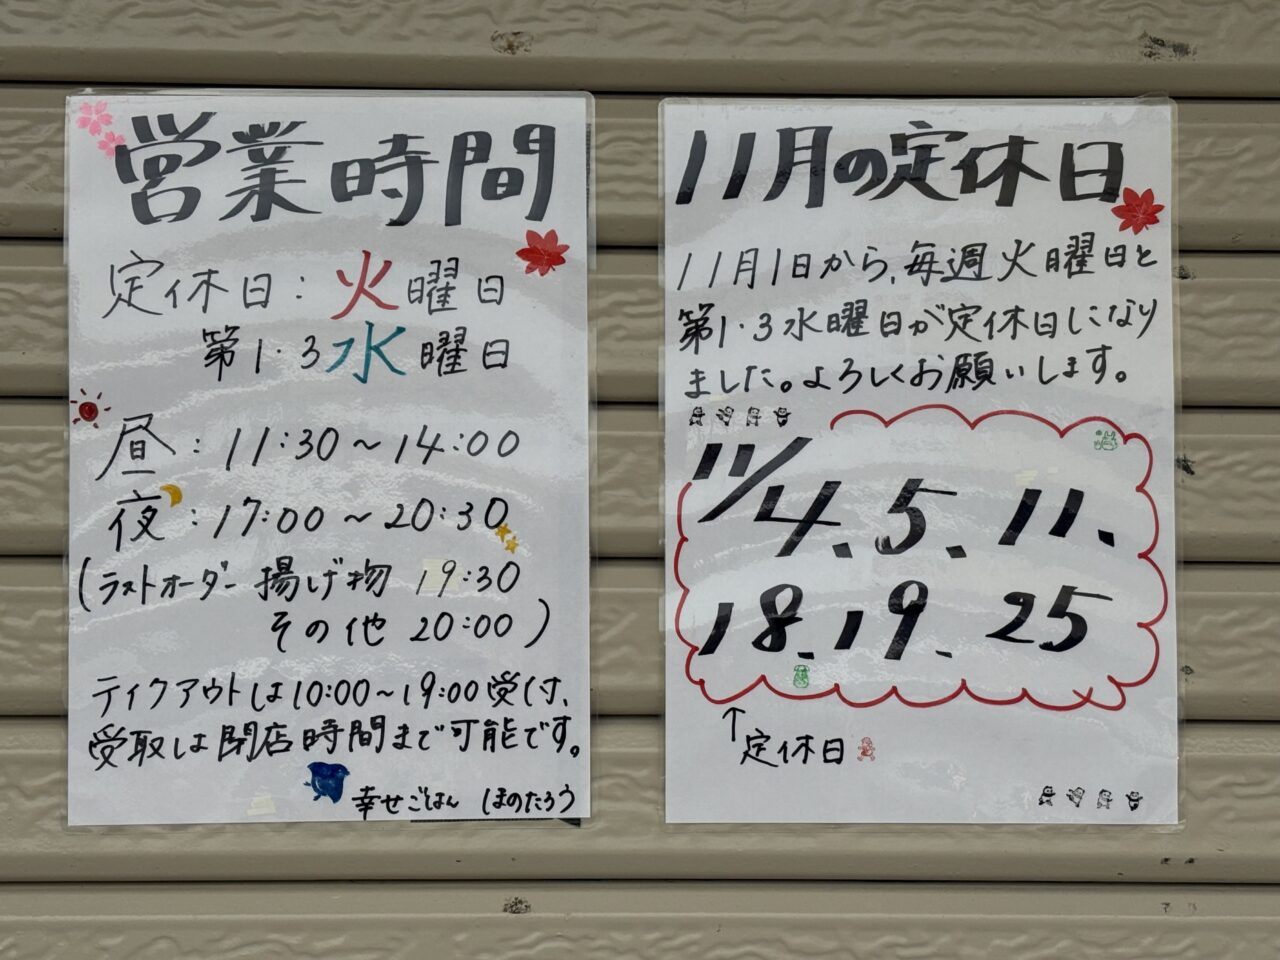 営業時間
定休日：火曜日
第1・3水曜日
昼：11:30～14:00
夜：17:00～20:30
（ラストオーダー 揚げ物 19:30
その他 20:00）
テイクアウトは10:00～19:00受付、
受取は閉店時間まで可能です。
幸せごはん ほのたろう
11月の定休日
11月1日から、毎週火曜日と
第1・3水曜日が定休日になり
ました。よろしくお願いします。
11/4、5、11、
18、19、25
↑定休日